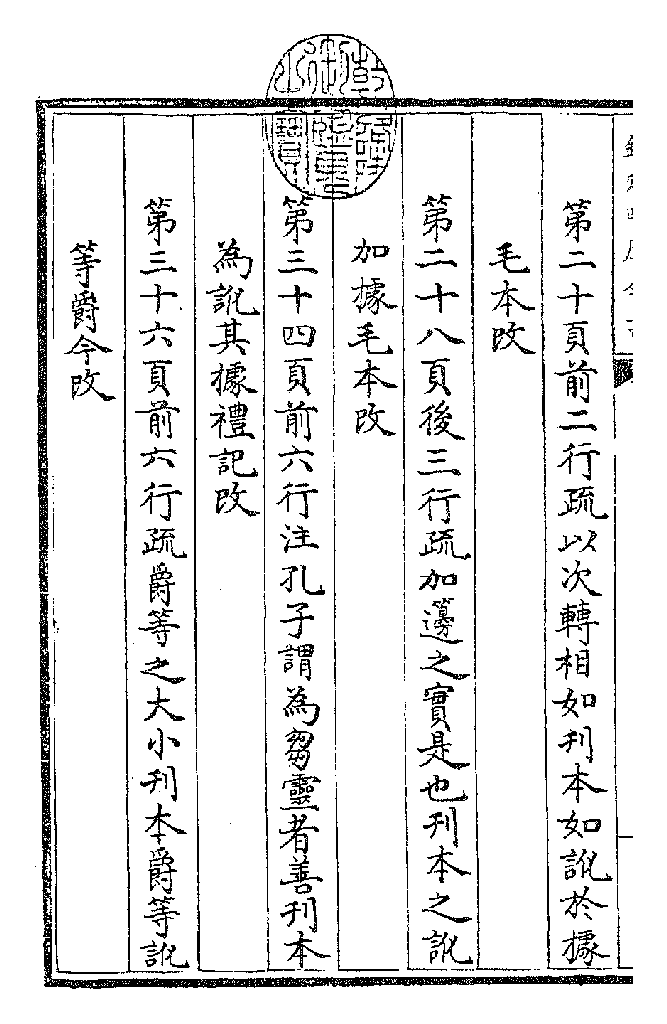 第二十頁前二行疏以次轉相如刊本如訛於據
毛本改
第二十八頁後三行疏加籩之實是也刊本之訛
加據毛本改
第三十四頁前六行注孔子謂為芻靈者善刊本
為訛其據禮記改
第三十六頁前六行疏爵等之大小刊本爵等訛
等爵今改